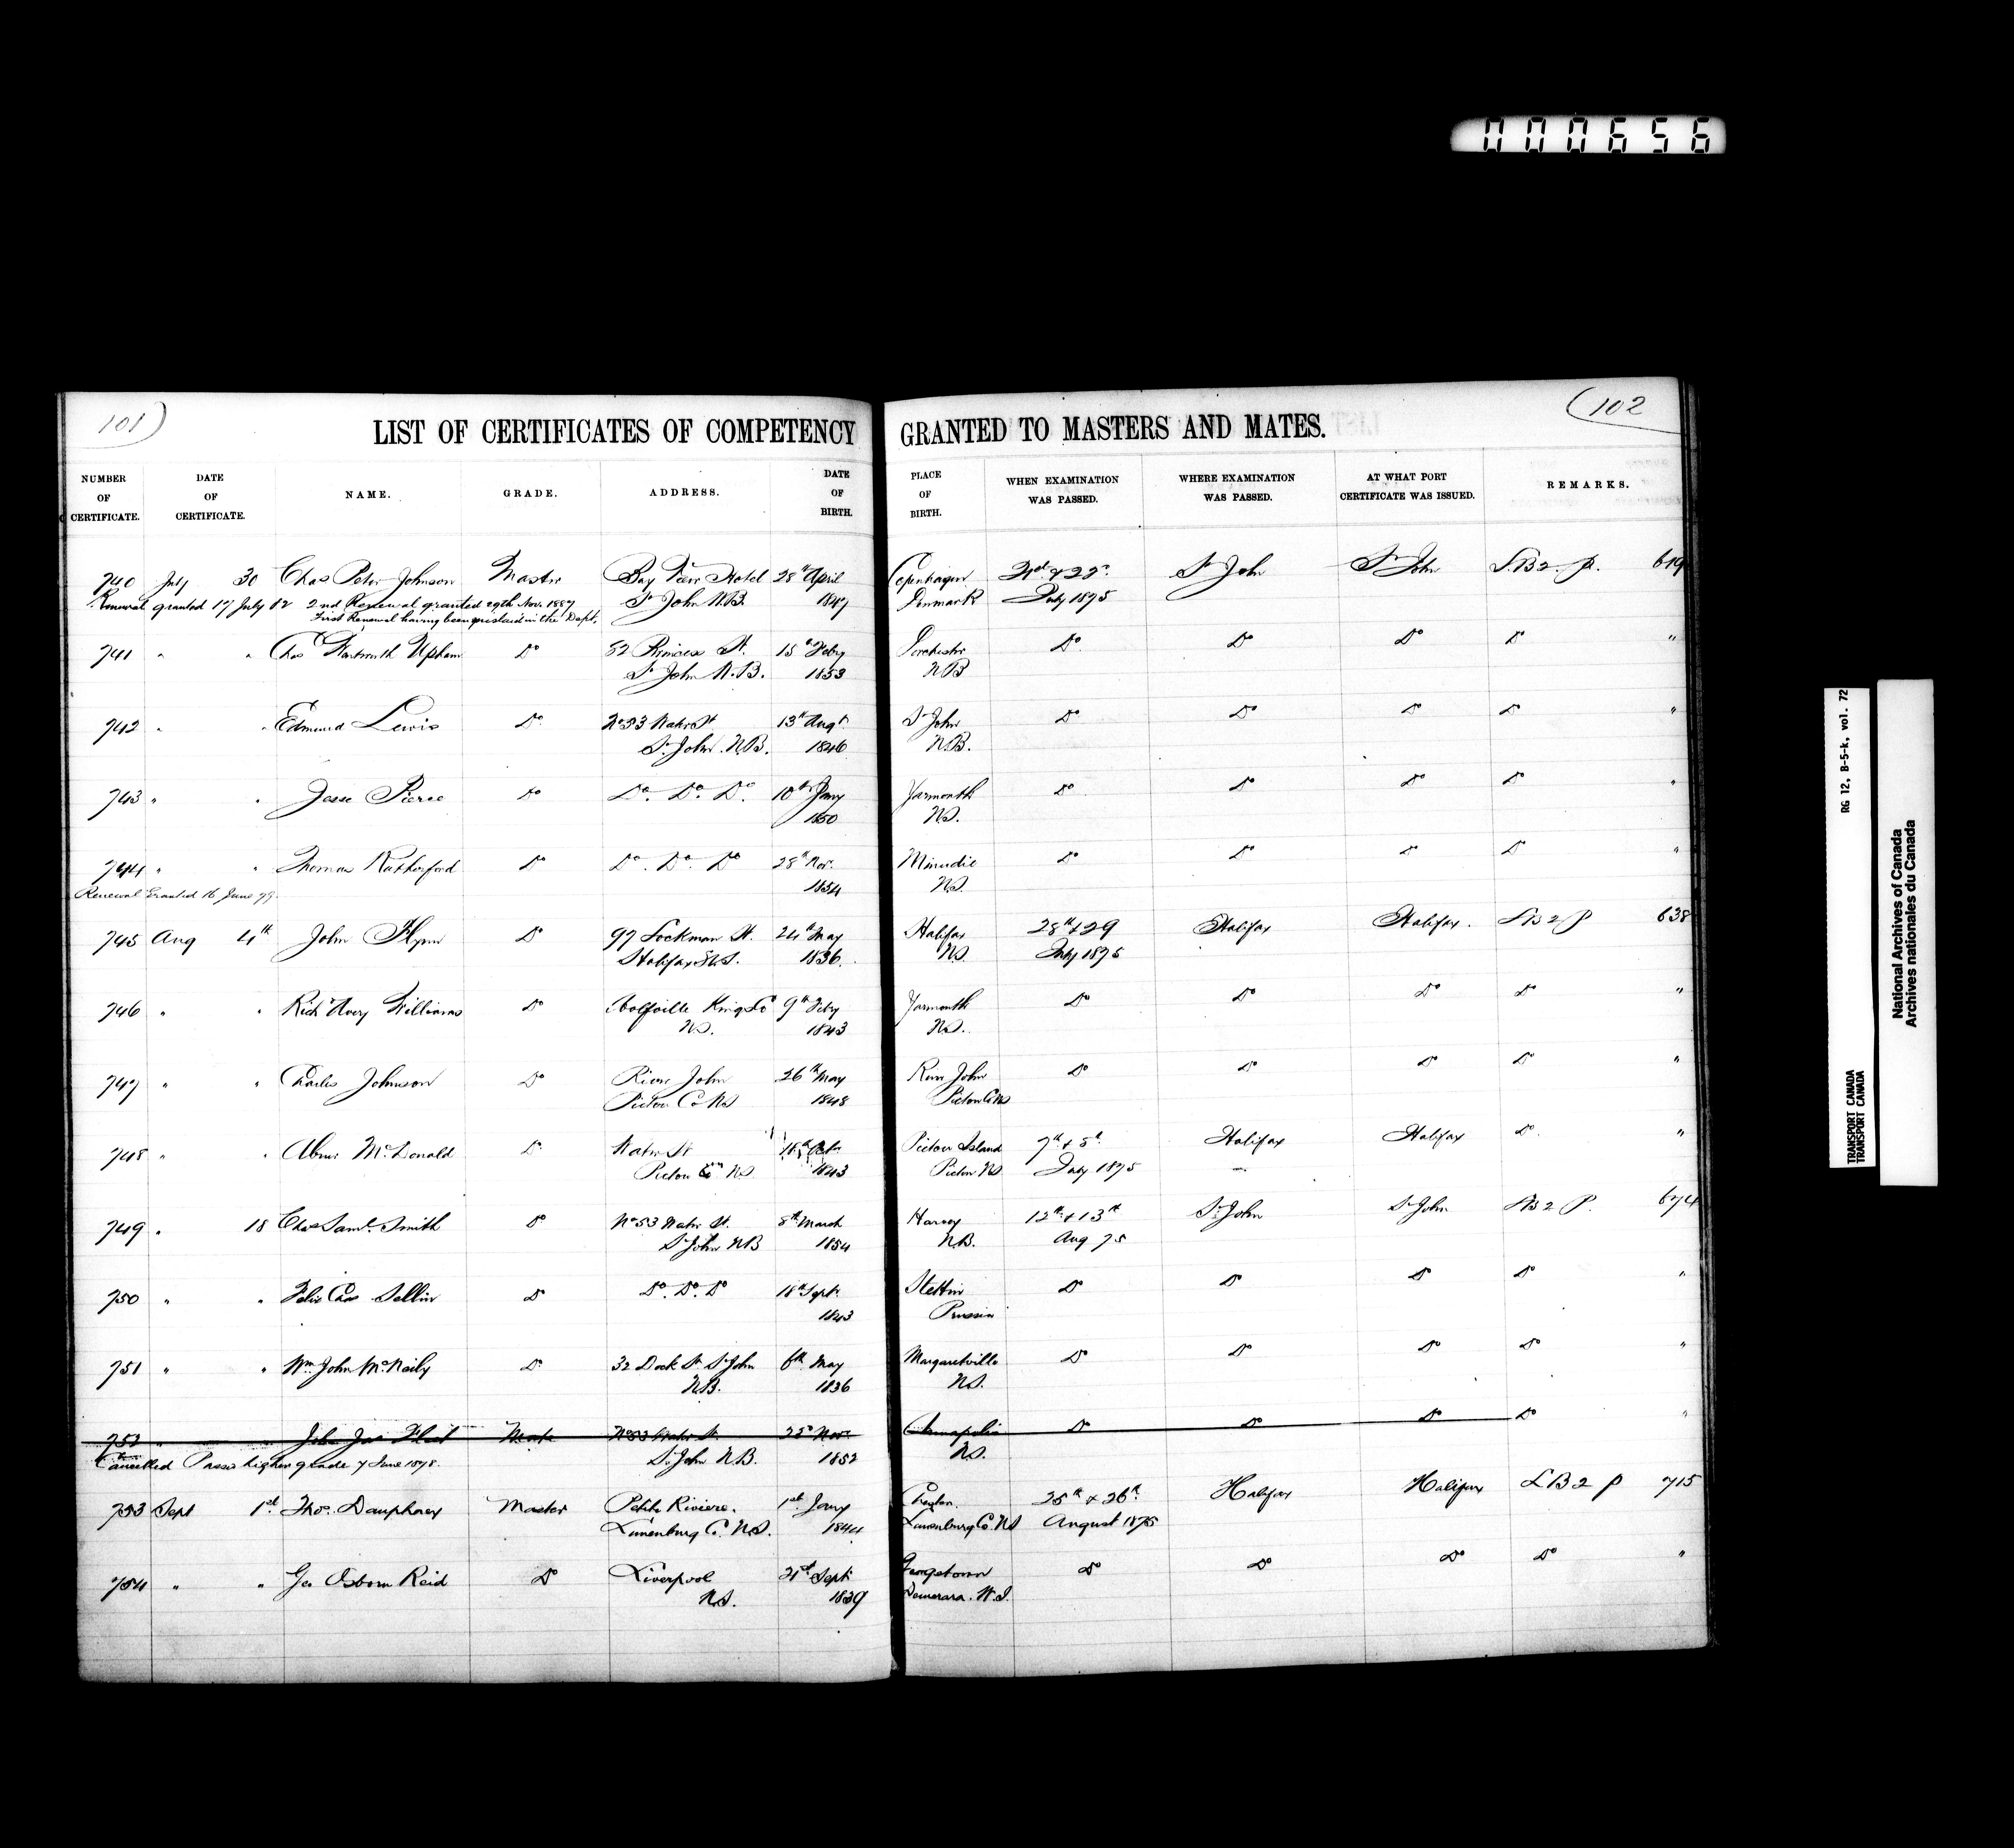 000656
101)
(102
LIST OF CERTIFICATES OF COMPETENCY GRANTED TO MASTERS AND MATES.
NUMBER OF CERTIFICATE. DATE OF CERTIFICATE. NAME. GRADE. ADDRESS. DATE OF BIRTH. PLACE OF BIRTH. WHEN EXAMINATION WAS PASSED. WHERE EXAMINATION WAS PASSED. AT WHAT PORT CERTIFICATE WAS ISSUED. REMARKS.
740 July 30 Chas Peter Johnson Master Bay View Hotel 28th April Copenhagen 21st & 22d St John St John L.B 2. P. 619
Renewal granted 17 July 82 2nd Renewal granted 29th Nov. 1887 St John N.B. 1847 Denmark July 1875
First Renewal having been mislaid in the Dept.
741 " " Chas Upham Do 82 Princess St. 15th Feby Dorchester Do Do Do Do "
St John N.B. 1853 NB
742 " " Edmund Lewis Do No 53 Water St 13th Augt St John Do Do Do Do "
St John. N.B. 1846 N.B.
743 " " Jesse Pierce Do Do. Do. Do. 10th Jany Yarmouth Do Do Do Do "
1850 N.S.
744 " " Thomas Rutherford Do Do. Do. Do 28th Nov. Minudie Do Do Do Do "
Renewal Granted 16 June 79. 1834 N.S.
745 Aug 4th John Flynn Do 97 Lockman St. 24th May Halifax 28th & 29 Halifax Halifax. LB 2 P 638
Halifax N.S. 1836. N.S. July 1875
746 " " Richd Avery Williams Do Wolfville Kings Co 9th Feby Yarmouth Do Do Do Do "
N.S. 1843 N.S.
747 " " Charles Johnson Do River John 26th May River John Do Do Do Do "
Pictou Co NS 1848 Pictou Co NS
748 " " Abner McDonald Do Water St 18th Oct. Pictou Island 7th & 8th Halifax Halifax Do. "
Pictou NS 1843 Pictou NS July 1875
749 " 18 Chas Saml. Smith Do No 53 Water St. 8th March Harvey 12th & 13th St John St John LB 2 P. 674
St John NB 1854 N.B. Aug 75
750 " " Felix Chas Sellin Do Do. Do. Do 18th Sept. Stettin Do Do Do Do "
1843 Prussia
751 " " Wm. John McNeily Do 32 Dock St. St John 6th May Margaretville Do Do Do Do "
N.B. 1836 N.S.
752 " " John Jas Mate No 53 Water St. 25th Nov. Annapolis Do Do Do Do "
Cancelled Passed higher grade 7 June 1878. St John N.B. 1852 N.S.
753 Sept 1st. Thos. Dauphney Master Petite Riviere. 1st. Jany 25th & 26th. Halifax Halifax LB 2 P 715
Lunenburg Co. N.S. 1844 Lunenburg Co. NS August 1875
754 " " Geo Osborn Reid Do Liverpool 21st Sept. Georgetown Do Do Do Do "
N.S. 1839 Demerara. W.I.
RG 12, B-5-k, vol. 72
TRANSPORT CANADA
TRANSPORT CANADA
National Archives of Canada
Archives nationales du Canada